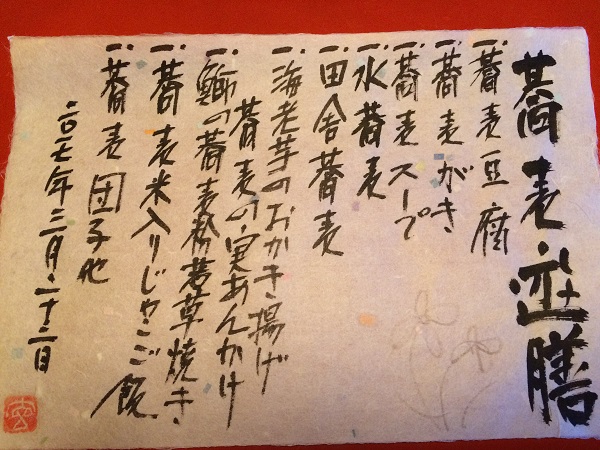 蕎麦遊膳
一、蕎麦豆腐
一、蕎麦がき
一、蕎麦スープ
一、水蕎麦
一、田舎蕎麦
一、海老芋のおかき揚げ
蕎麦の実あんかけ
一、鰤の蕎麦粉若草焼き
一、蕎麦米入りじゃこご飯
一、蕎麦団子他
二〇一七年三月二十二日